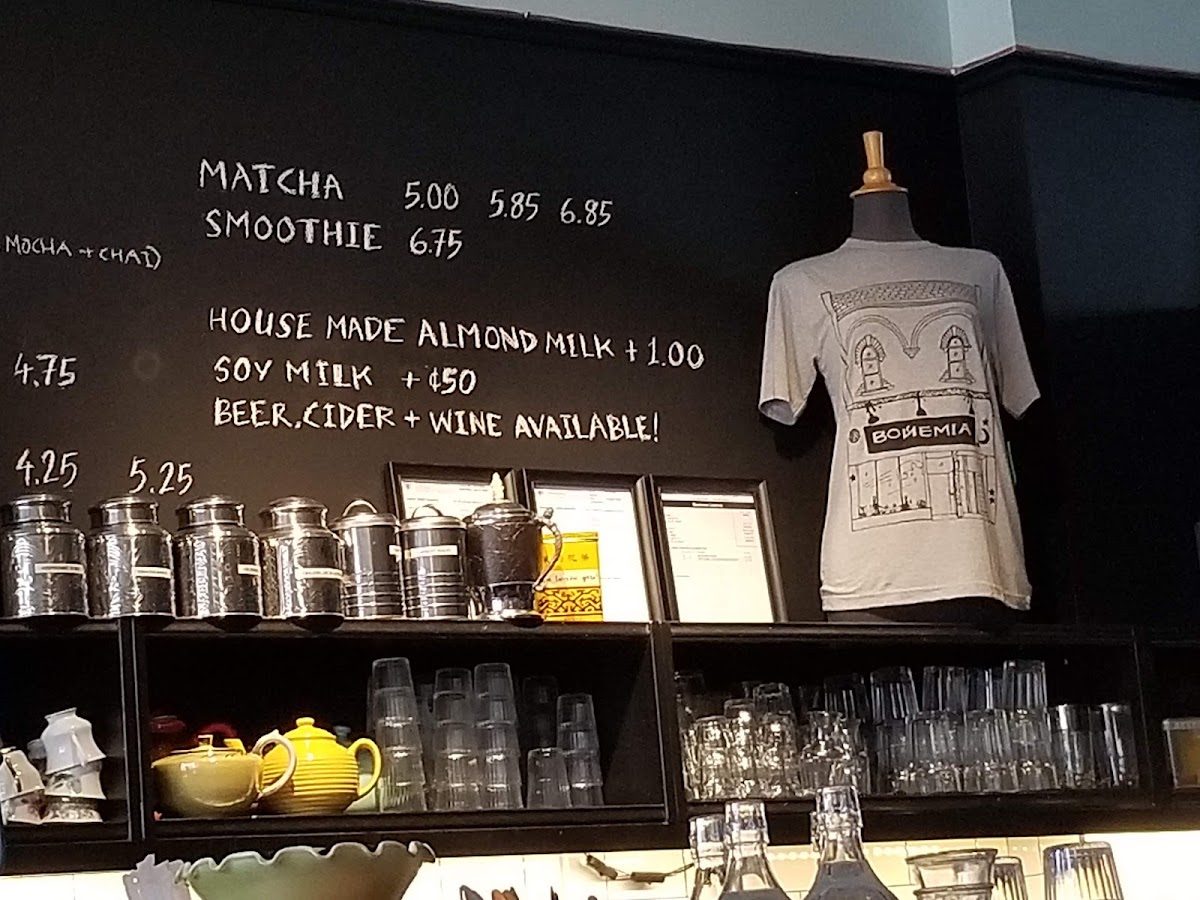 MATCHA 5.00 5.85 6.85
SMOOTHIE 6.75
MOCHA + CHAI)
HOUSE MADE ALMOND MILK + 1.00
4.75
SOY MILK + ¢50
BEER, CIDER + WINE AVAILABLE!
4.25 5.25
BOHEMIA